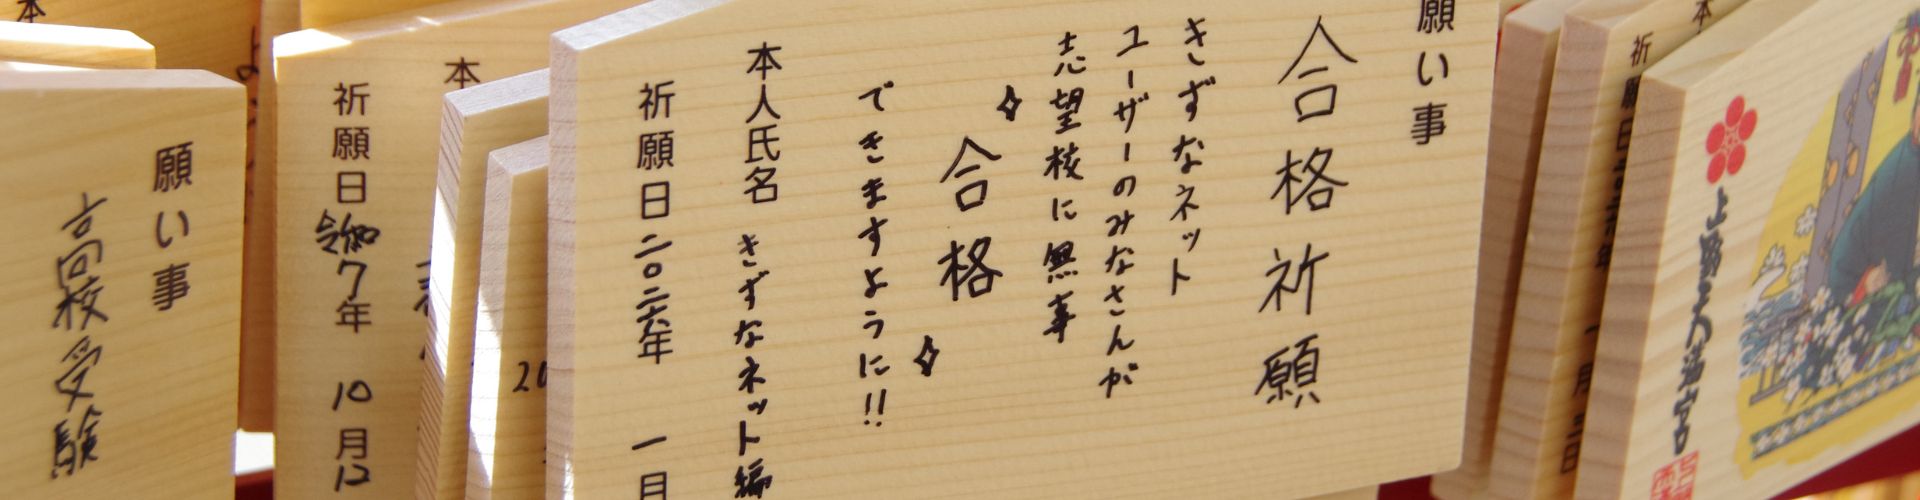 願い事
合格祈願
きずなネット
ユーザーのみなさんが
志望校に無事
✧合格✧
できますように!!
本人氏名 きずなネット編
祈願日 二〇二六年 一月
本
祈願日 令和7年 10月12
願い事
高校受験
20
本
祈願日
上野天満宮